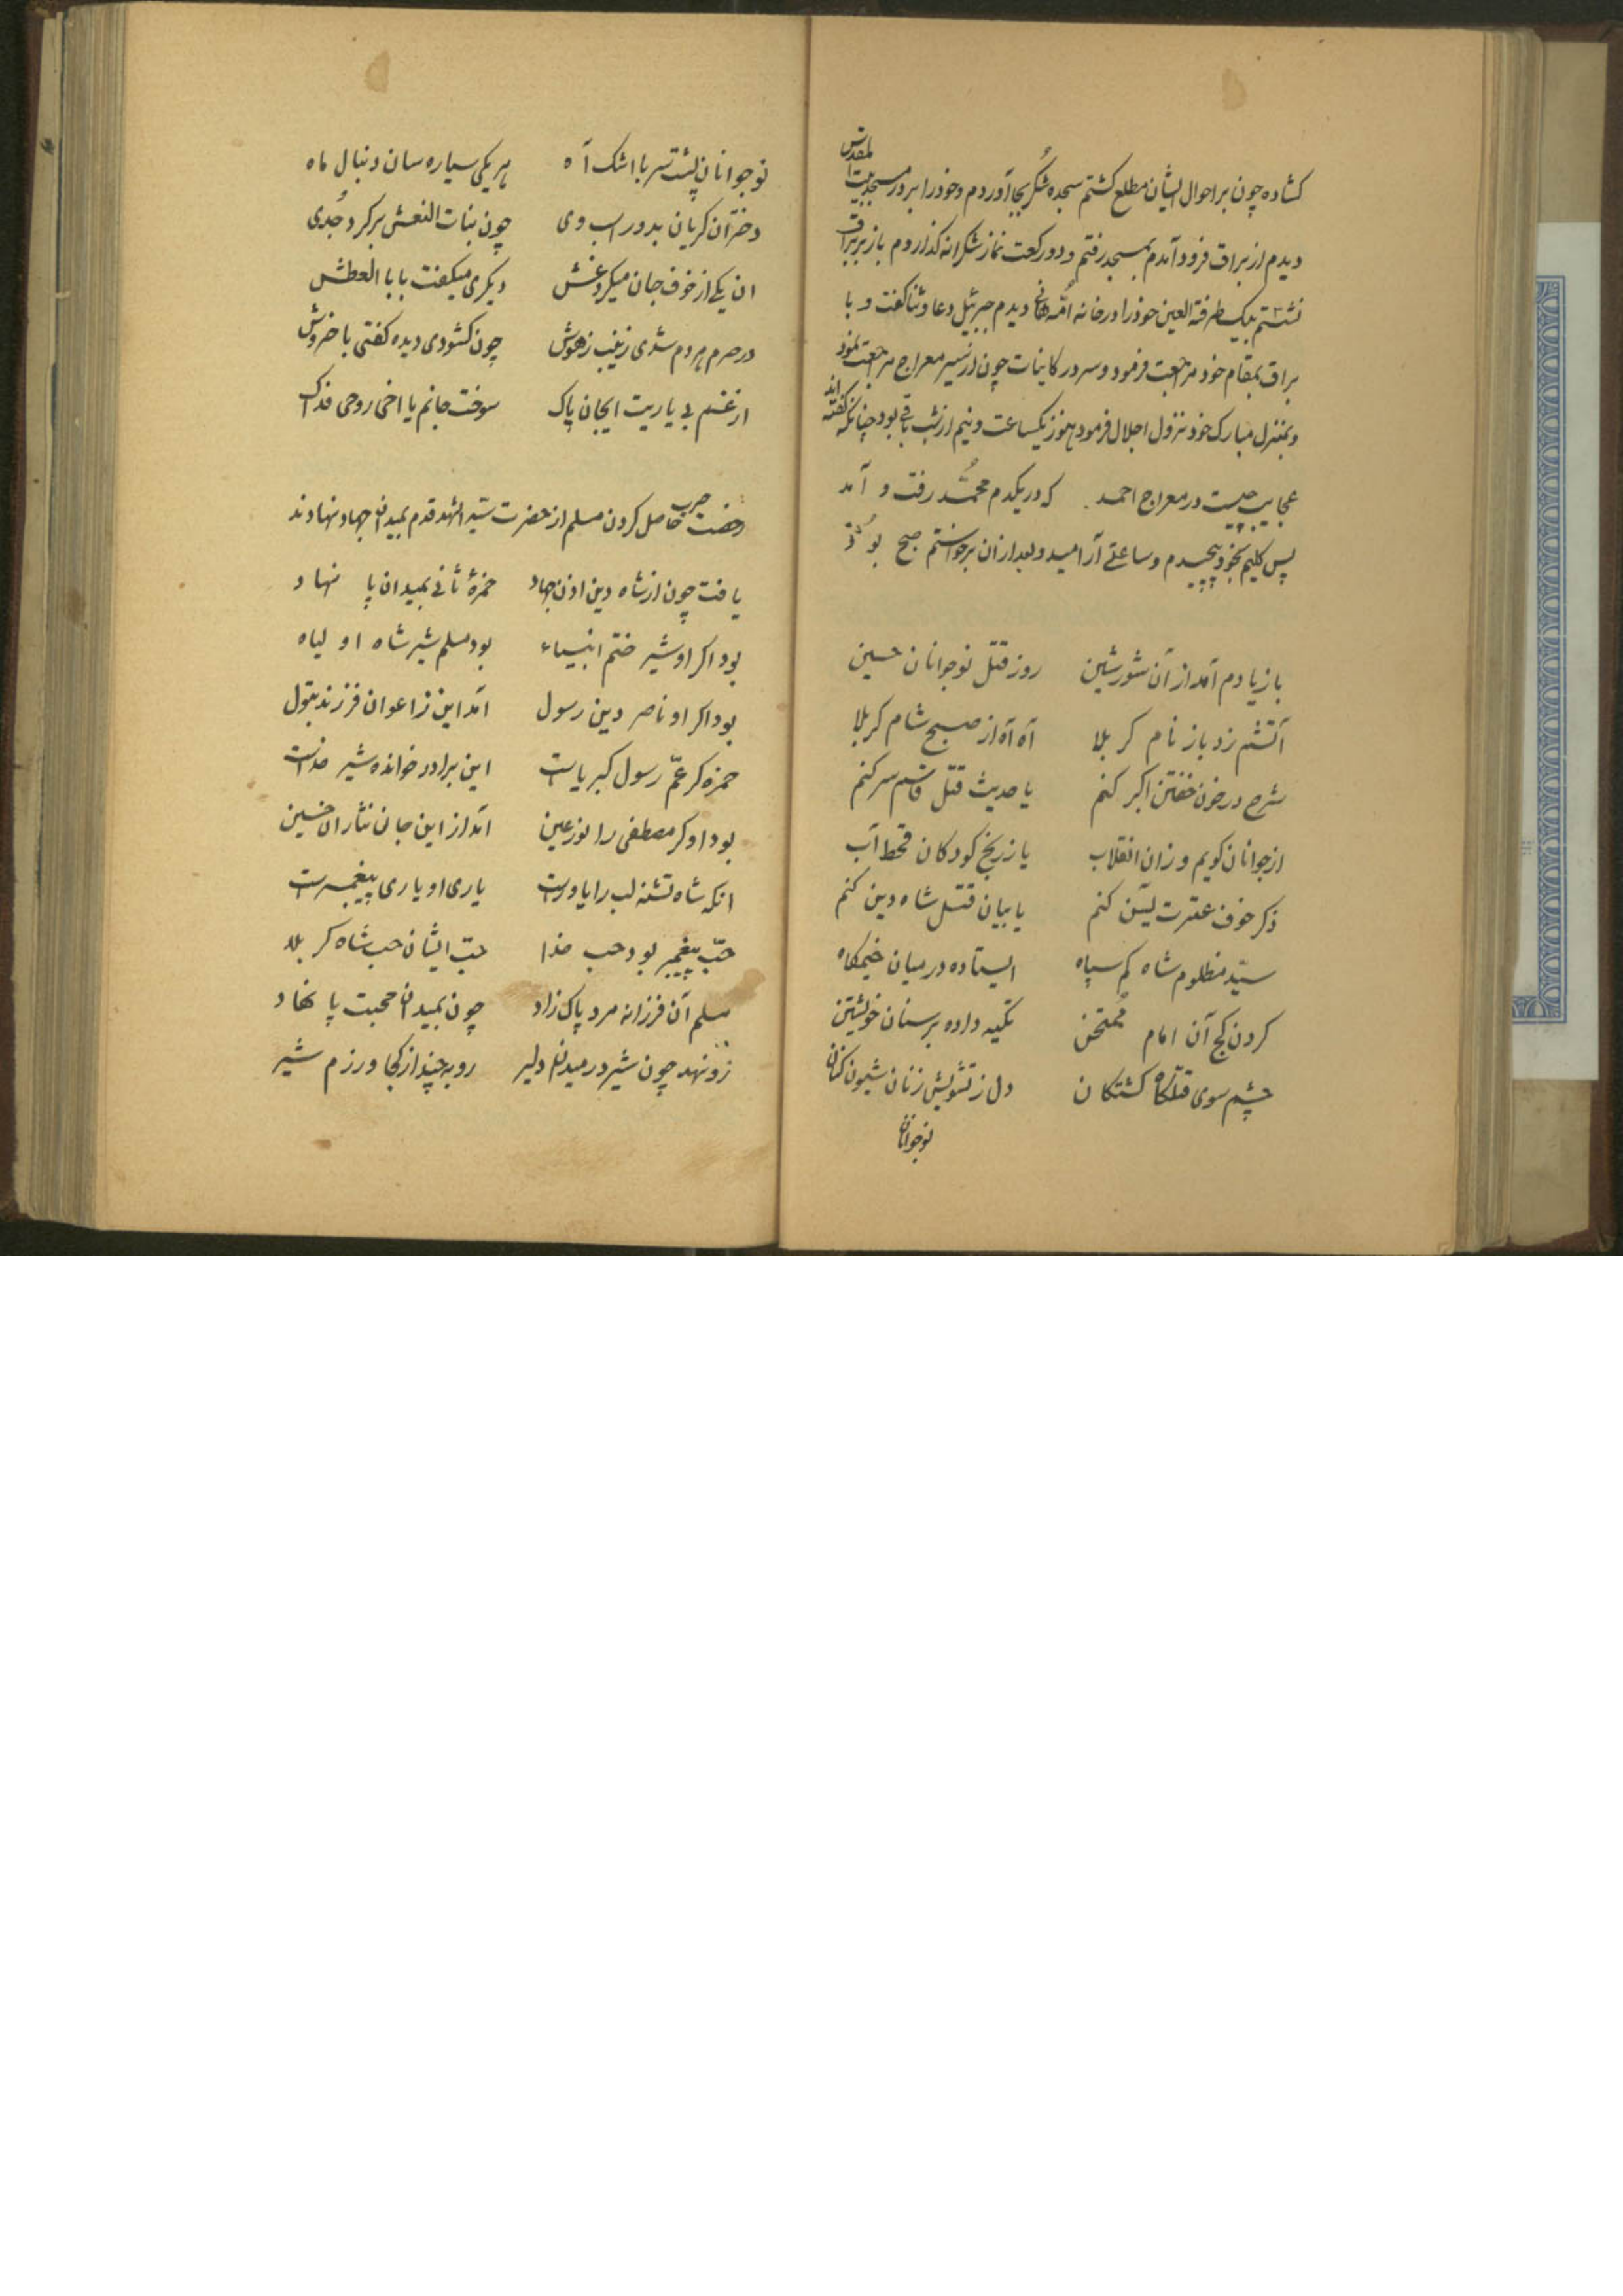 کشاده چون بر احوال ایشان مطلع کشتم سجده شُکر بجا آوردم و خود را بر در مسجد بیت المقدس
دیدم از براق فرود آمدم بمسجد رفتم و دو رکعت نماز شکرانه کذاردم باز بر براق
نشستم بیک طرفة العین خود را در خانه اُمّ هانی دیدم جبرئیل دعا و ثنا کفت و با
براق بمقام خود مراجعت فرمود و سرور کاینات چون از سیر معراج مراجعت نمود
و بمنزل مبارک خود نزول اجلال فرمود هنوز یکساعت و نیم از شب باقی بود چنانکه کفته اند
عجایب چیست در معراج احمد که در یکدم محمّد رفت و آمد
پس کلیم بخود پیچیدم و ساعتی آرامید و بعد از آن برخواستم صبح بود
باز یادم آمد از آن شور شین روز قتل نوجوانان حسین
آتشم زد باز نام کربلا آه آه از صبح شام کربلا
شرح در خون خفتن اکبر کنم یا حدیث قتل قاسم سر کنم
از جوانان کویم و زان انقلاب یا ز رنج کودکان قحط آب
ذکر خوف عترت یسن کنم یا بیان قتل شاه دین کنم
سیّد مظلوم شاه کم سپاه ایستاده در میان خیمکاه
کردن کج آن امام مُمتحن تکیه داده بر سنان خویشتن
چشم سوی قتلکاه کشتکان دل ز تشویش زنان شیون کنان
نوجوانان
نوجوانان پشت سر با اشک آه هر یکی سیاره سان دنبال ماه
دختران کریان بدور اسب وی چون بنات النعش بر کرد جُدی
ان یکی از خوف جان میکرد غش دیکری میکفت بابا العطش
در حرم هر دم شدی زینب ز هوش چون کشودی دیده کفتی با خروش
از غم بی یاریت ایجان پاک سوخت جانم یا اخی روحی فداک
رخصت حرب حاصل کردن مسلم از حضرت سیّد الشهدا قدم بمیدان جهاد نهادند
یافت چون از شاه دین اذن جهاد حمزهٔ ثانی بمیدان پا نهاد
بود اکر او شیر ختم انبیاء بود مسلم شیر شاه اولیاه
بود اکر او ناصر دین رسول آمد این ز اعوان فرزند بتول
حمزه کر عمّ رسول کبریاست این برادر خوانده شیر خداست
بود او کر مصطفی را نور عین آمد از این جان نثاران حسین
انکه شاه تشنه لب را یاور است یاری او یاری پیغمبر است
حبّ پیغمبر بود حب خدا حبّ ایشان حب شاه کربلا
مسلم آن فرزانه مرد پاک زاد چون بمیدان محبت پا نهاد
زو نهد چون شیر در میدان دلیر روبه چند از کجا و رزم شیر